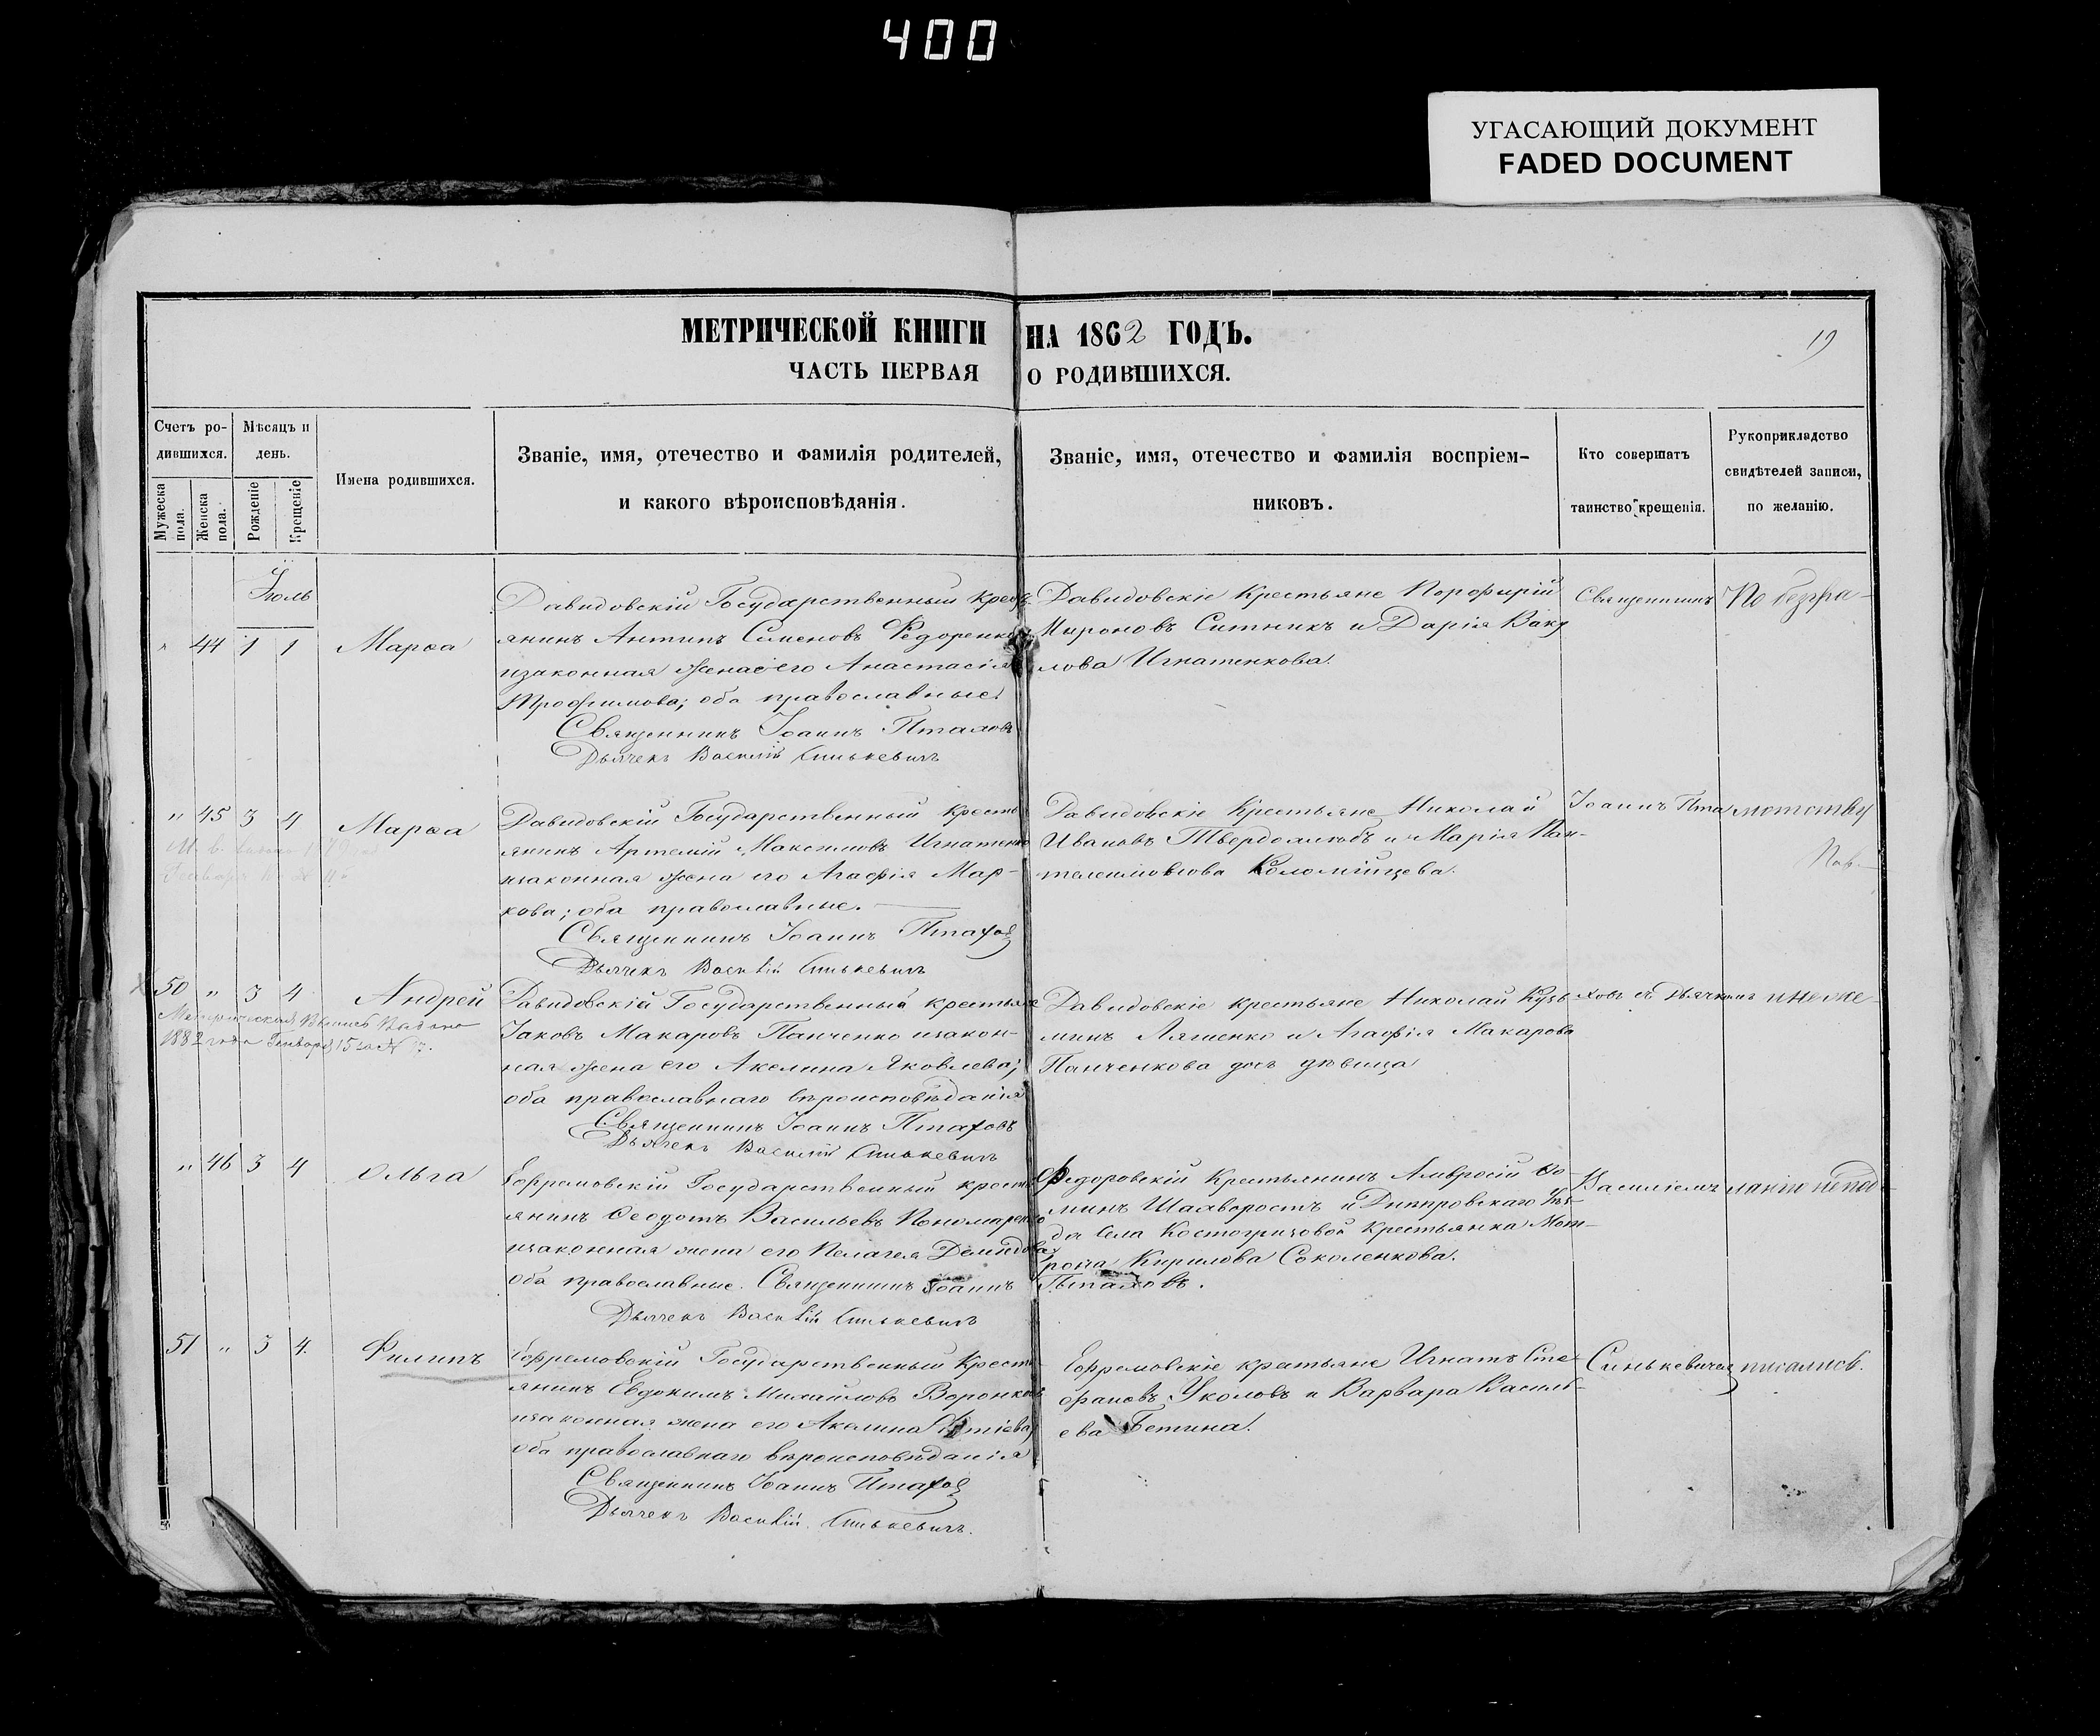 400
УГАСАЮЩИЙ ДОКУМЕНТ
FADED DOCUMENT
МЕТРИЧЕСКОЙ КНИГИ НА 1862 ГОДЪ.
19
ЧАСТЬ ПЕРВАЯ О РОДИВШИХСЯ.
Счетъ родившихся.
Мужеска пола.
Женска пола.
Мѣсяцъ и день.
Рожденіе
Крещеніе
Имена родившихся.
Званіе, имя, отечество и фамилія родителей,
и какого вѣроисповѣданія.
Званіе, имя, отечество и фамилія воспріем-
никовъ.
Кто совершатъ
таинство крещенія.
Рукоприкладство
свидѣтелей записи,
по желанію.
Іюль
" 44 1 1 Марѳа
Давидовскій Государственный Кресть
янинъ Антипъ Сименовъ Федоренко
изаконная жена его Анастасія
Трофимова; оба православные.
Священникъ Іоаннъ Птаховъ
Дьячекъ Василій Синькевичъ
Давидовскіе Крестьяне Порфирій
Мироновъ Ситникъ и Дарія Ваку
лова Игнатенкова.
Священникъ
По безгра-
" 45 3 4 Марѳа
Давидовскій Государственный Кресть
янинъ Артемій Максимовъ Игнатенко
изаконная жена его Агафія Мар-
кова; оба православные.
Священникъ Іоаннъ Птаховъ
Дьячекъ Василій Синькевичъ
Давидовскіе Крестьяне Николай
Ивановъ Твердохлѣбъ и Марія Пан-
телеимонова Коломійцева.
Іоаннъ Пта
мотству
50 " 3 4 Андрей
Метрическая Выпись Выдана
1882 года Января 15 за №
Давидовскій Государственный крестьяне
Іаковъ Макаровъ Панченко изакон-
ная жена его Акелина Яковлева;
оба православнаго вѣроисповѣданія
Священникъ Іоаннъ Птаховъ
Дьячекъ Василій Синькевичъ
Давидовскіе крестьяне Николай Кузь
минъ Ляшенко и Агафія Макарова
Панченкова дѣвица
ховъ съ Дьячкомъ
и неже-
" 46 3 4 Ольга
Ефремовскій Государственный кресть
янинъ Ѳеодотъ Васильевъ Пономаренко
изаконная жена его Пелагея Демидова
оба православные. Священникъ Іоаннъ Птаховъ.
Дьячекъ Василій Синькевичъ
Федоровскій Крестьянинъ Амвросій Ѳо-
минъ Шахворостъ и Днѣпровскаго Уѣз-
да Села Костогризовой Крестьянка Мот-
рона Кирилова Соколенкова.
Василіемъ
ланію непод-
51 " 3 4. Филипъ
Ефремовскій Государственный Кресть
янинъ Евдокимъ Михайловъ Воронковъ
изаконная жена его Акелина
оба православнаго вѣроисповѣданія
Священникъ Іоаннъ Птаховъ
Дьячекъ Василій Синькевичъ.
Ефремовскіе крестьяне Игнатъ Сте
фановъ Уколовъ и Варвара Василь-
ева Бетина.
Синькевичемъ
писались.